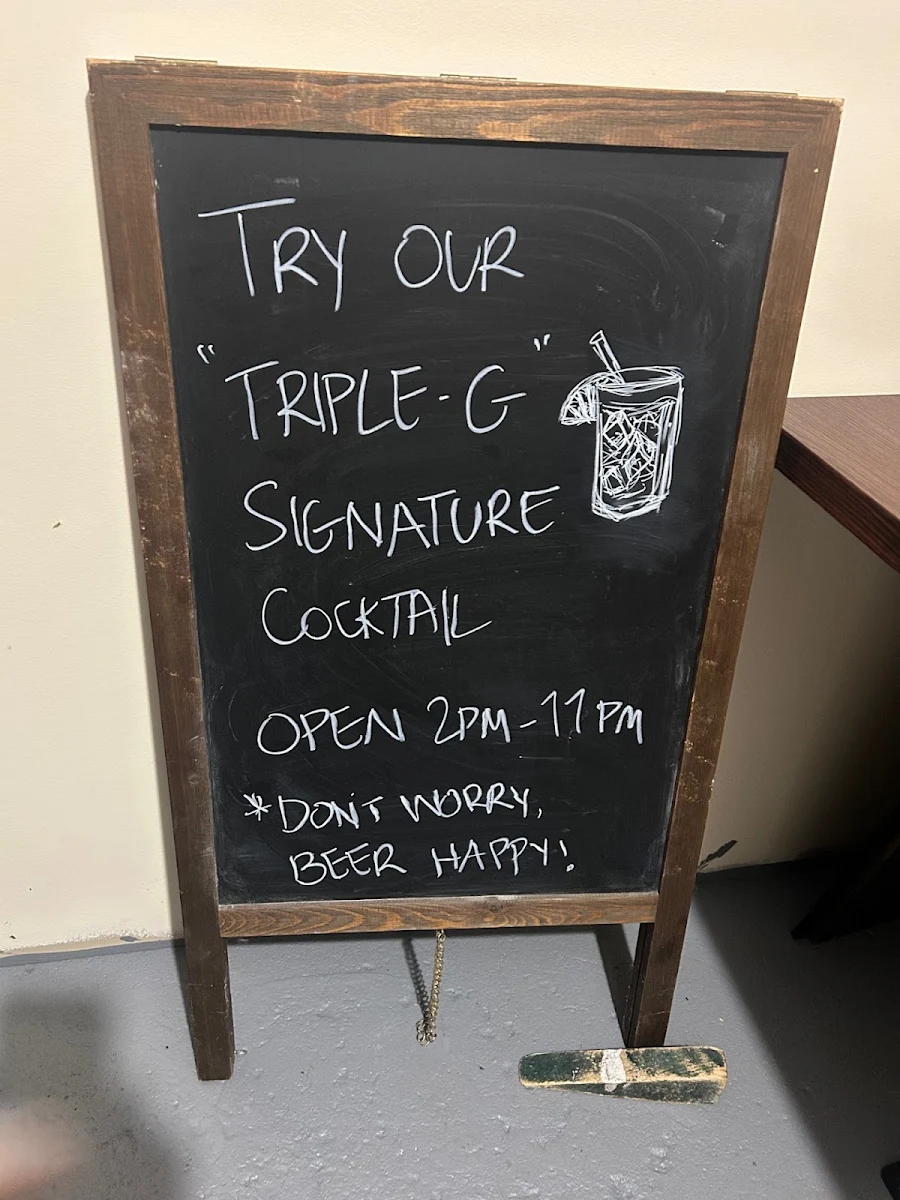 TRY OUR
"TRIPLE-G"
SIGNATURE
COCKTAIL
OPEN 2PM-11PM
*DON'T WORRY,
BEER HAPPY!